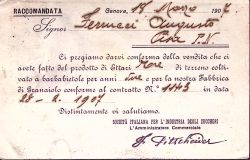 RACCOMANDATA
Genova, 18 Marzo 1907
Signor Ferrucci Augusto
Pisa P.N.
Ci pregiamo darvi conferma della vendita che ci
avete fatto del prodotto di Ettari di terreno colti-
vato a barbabietole per anni e per la nostra Fabbrica
di Granaiolo conforme al contratto N. 1143 in data
28-2-1907
Distintamente vi salutiamo.
SOCIETÀ ITALIANA PER L'INDUSTRIA DEGLI ZUCCHERI
L'Amministratore Commerciale